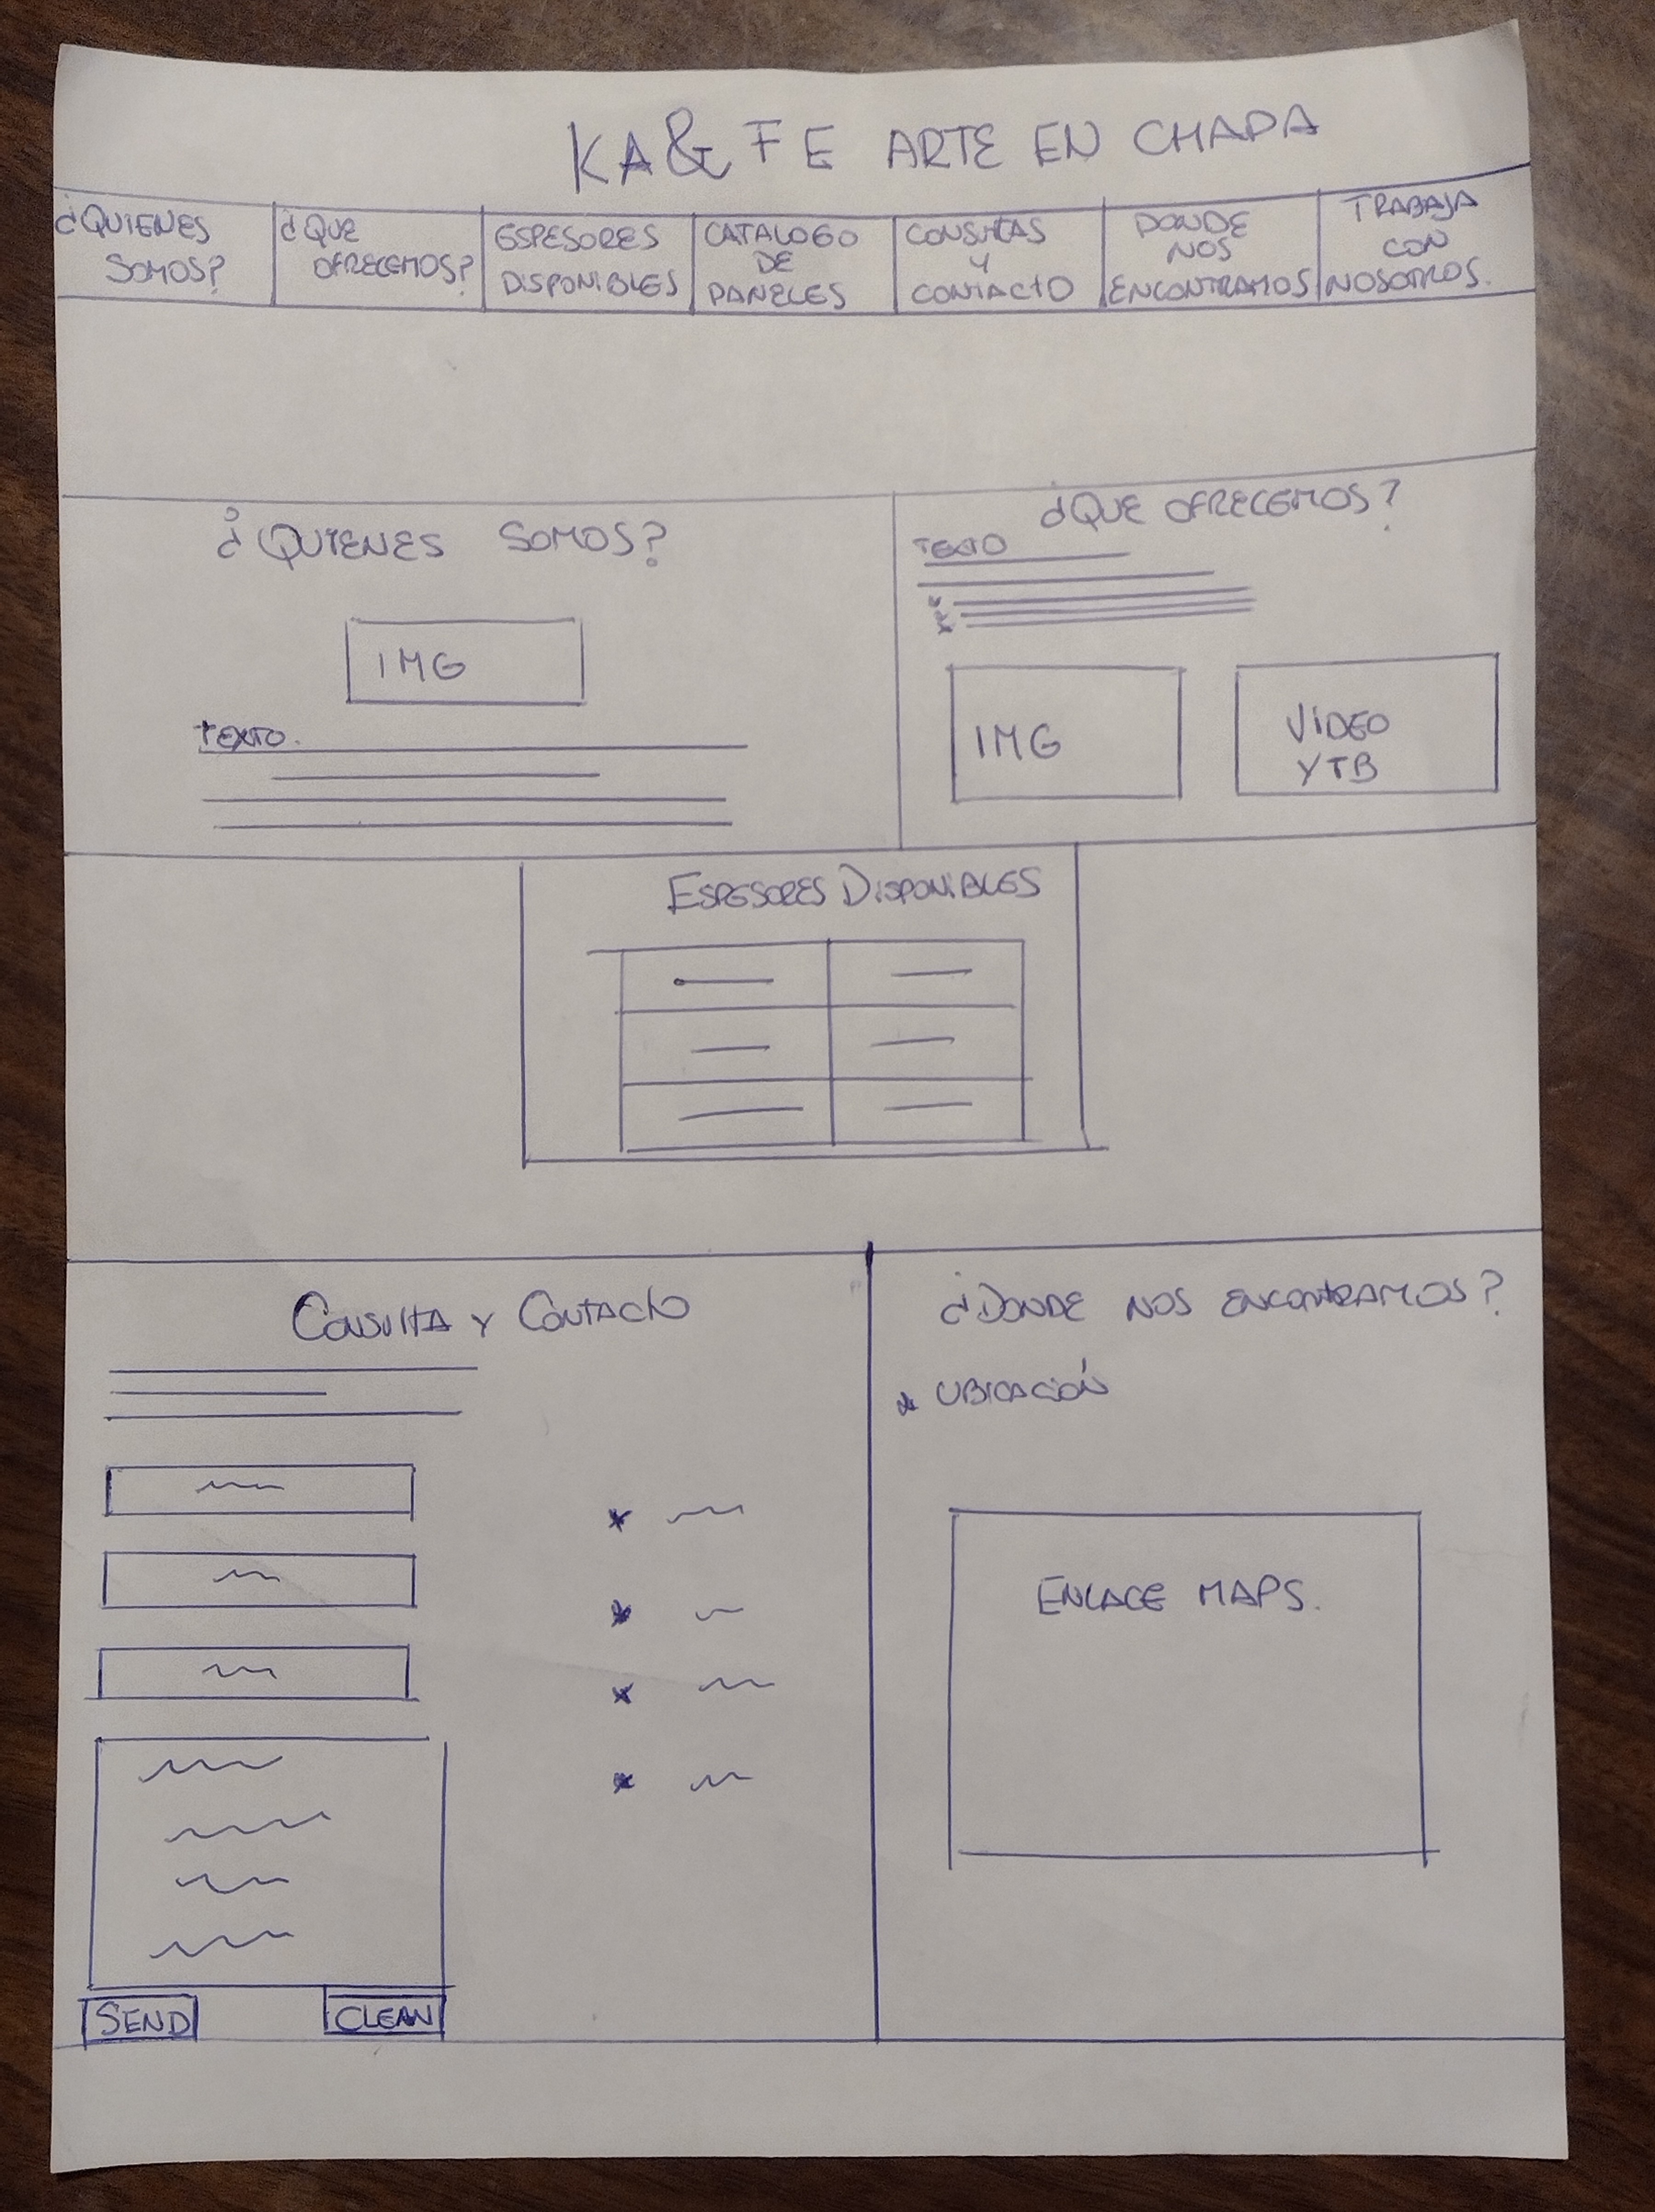 KA&FE ARTE EN CHAPA
¿QUIENES
SOMOS?
¿QUE
OFRECEMOS?
ESPESORES
DISPONIBLES
CATALOGO
DE
PANELES
CONSULTAS
Y
CONTACTO
DONDE
NOS
ENCONTRAMOS
TRABAJA
CON
NOSOTROS.
¿QUIENES SOMOS?
IMG
TEXTO.
¿QUE OFRECEMOS?
TEXTO
IMG
VIDEO
YTB
ESPESORES DISPONIBLES
CONSULTA Y CONTACTO
SEND
CLEAN
¿DONDE NOS ENCONTRAMOS?
* UBICACIÓN
ENLACE MAPS.